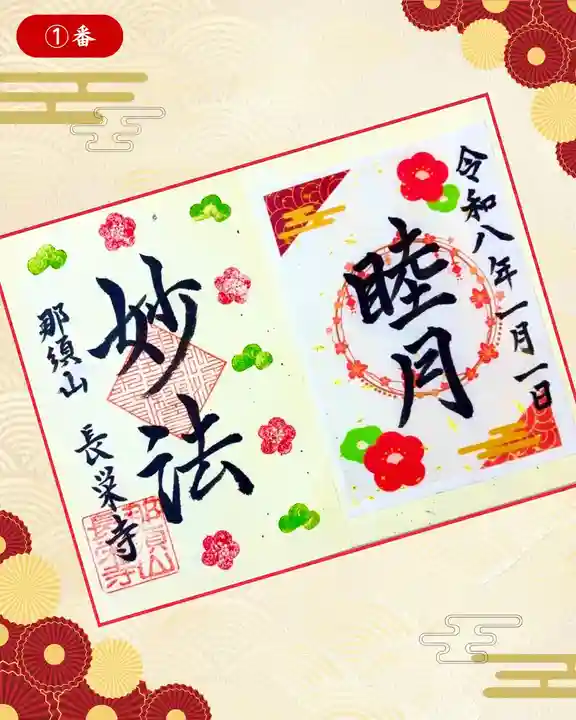 ①番
令和八年一月一日
睦月
妙法
那須山
長栄寺